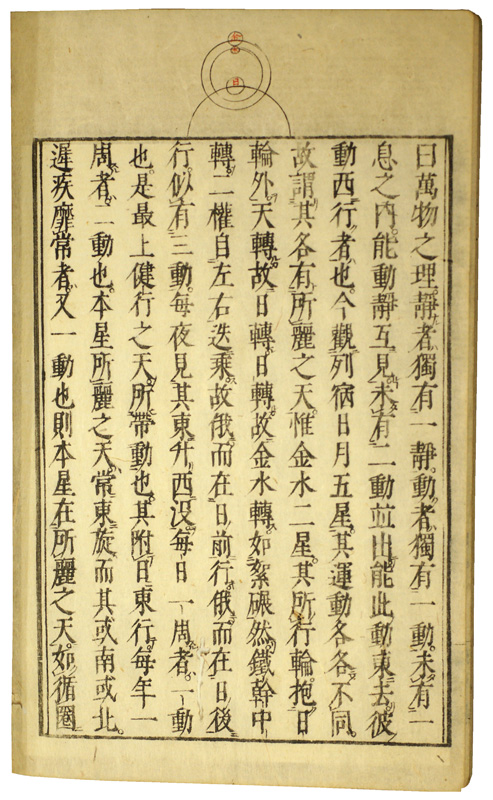 日
曰萬物之理靜者獨有一靜動者獨有一動未有一
息之內能動靜互見未有二動並出能此動東去彼
動西行者也今觀列宿日月五星其運動各各不同
故謂其各有所麗之天惟金水二星其所行輪抱日
輪外天轉故日轉日轉故金水轉如絮碾然鐵幹中
轉二權自左右迭乘故俄而在日前行俄而在日後
行似有三動每夜見其東升西沒每日一周者一動
也是最上健行之天所帶動也其附日東行每年一
周者二動也本星所麗之天常東旋而其或南或北
遲疾靡常者又一動也則本星在所麗之天如循圈